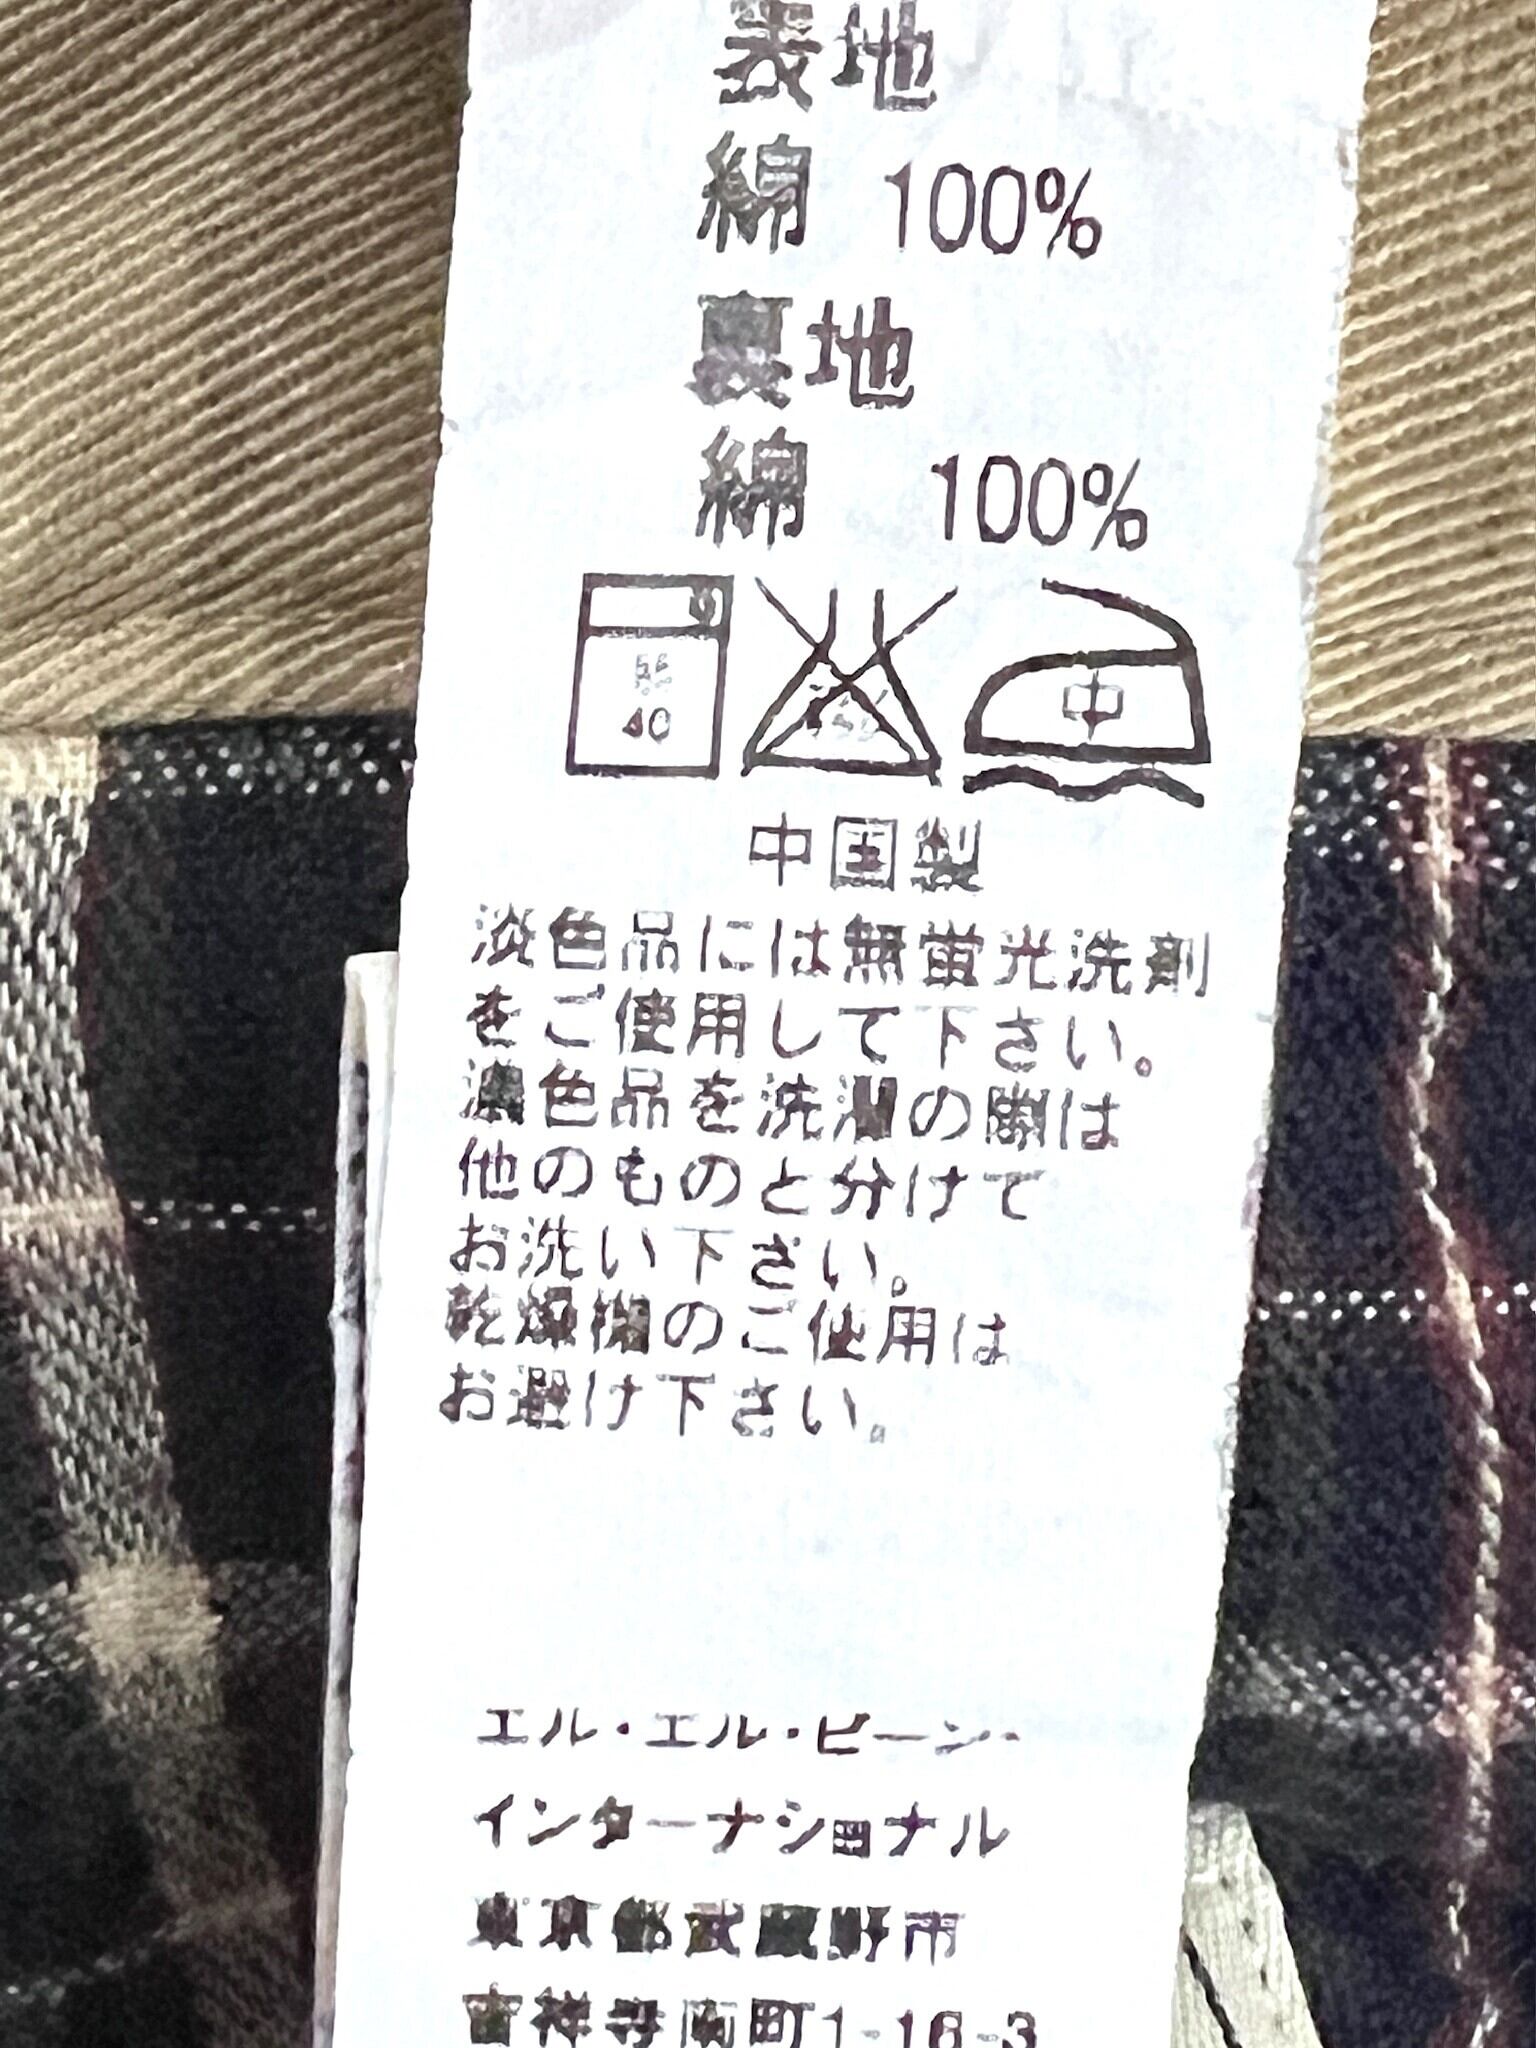 表地
綿 100%
裏地
綿 100%
弱
40
中
中国製
淡色品には無蛍光洗剤
をご使用して下さい。
濃色品を洗濯の際は
他のものと分けて
お洗い下さい。
乾燥機のご使用は
お避け下さい。
エル・エル・ビーン・
インターナショナル
東京都武蔵野市
吉祥寺南町1-16-3